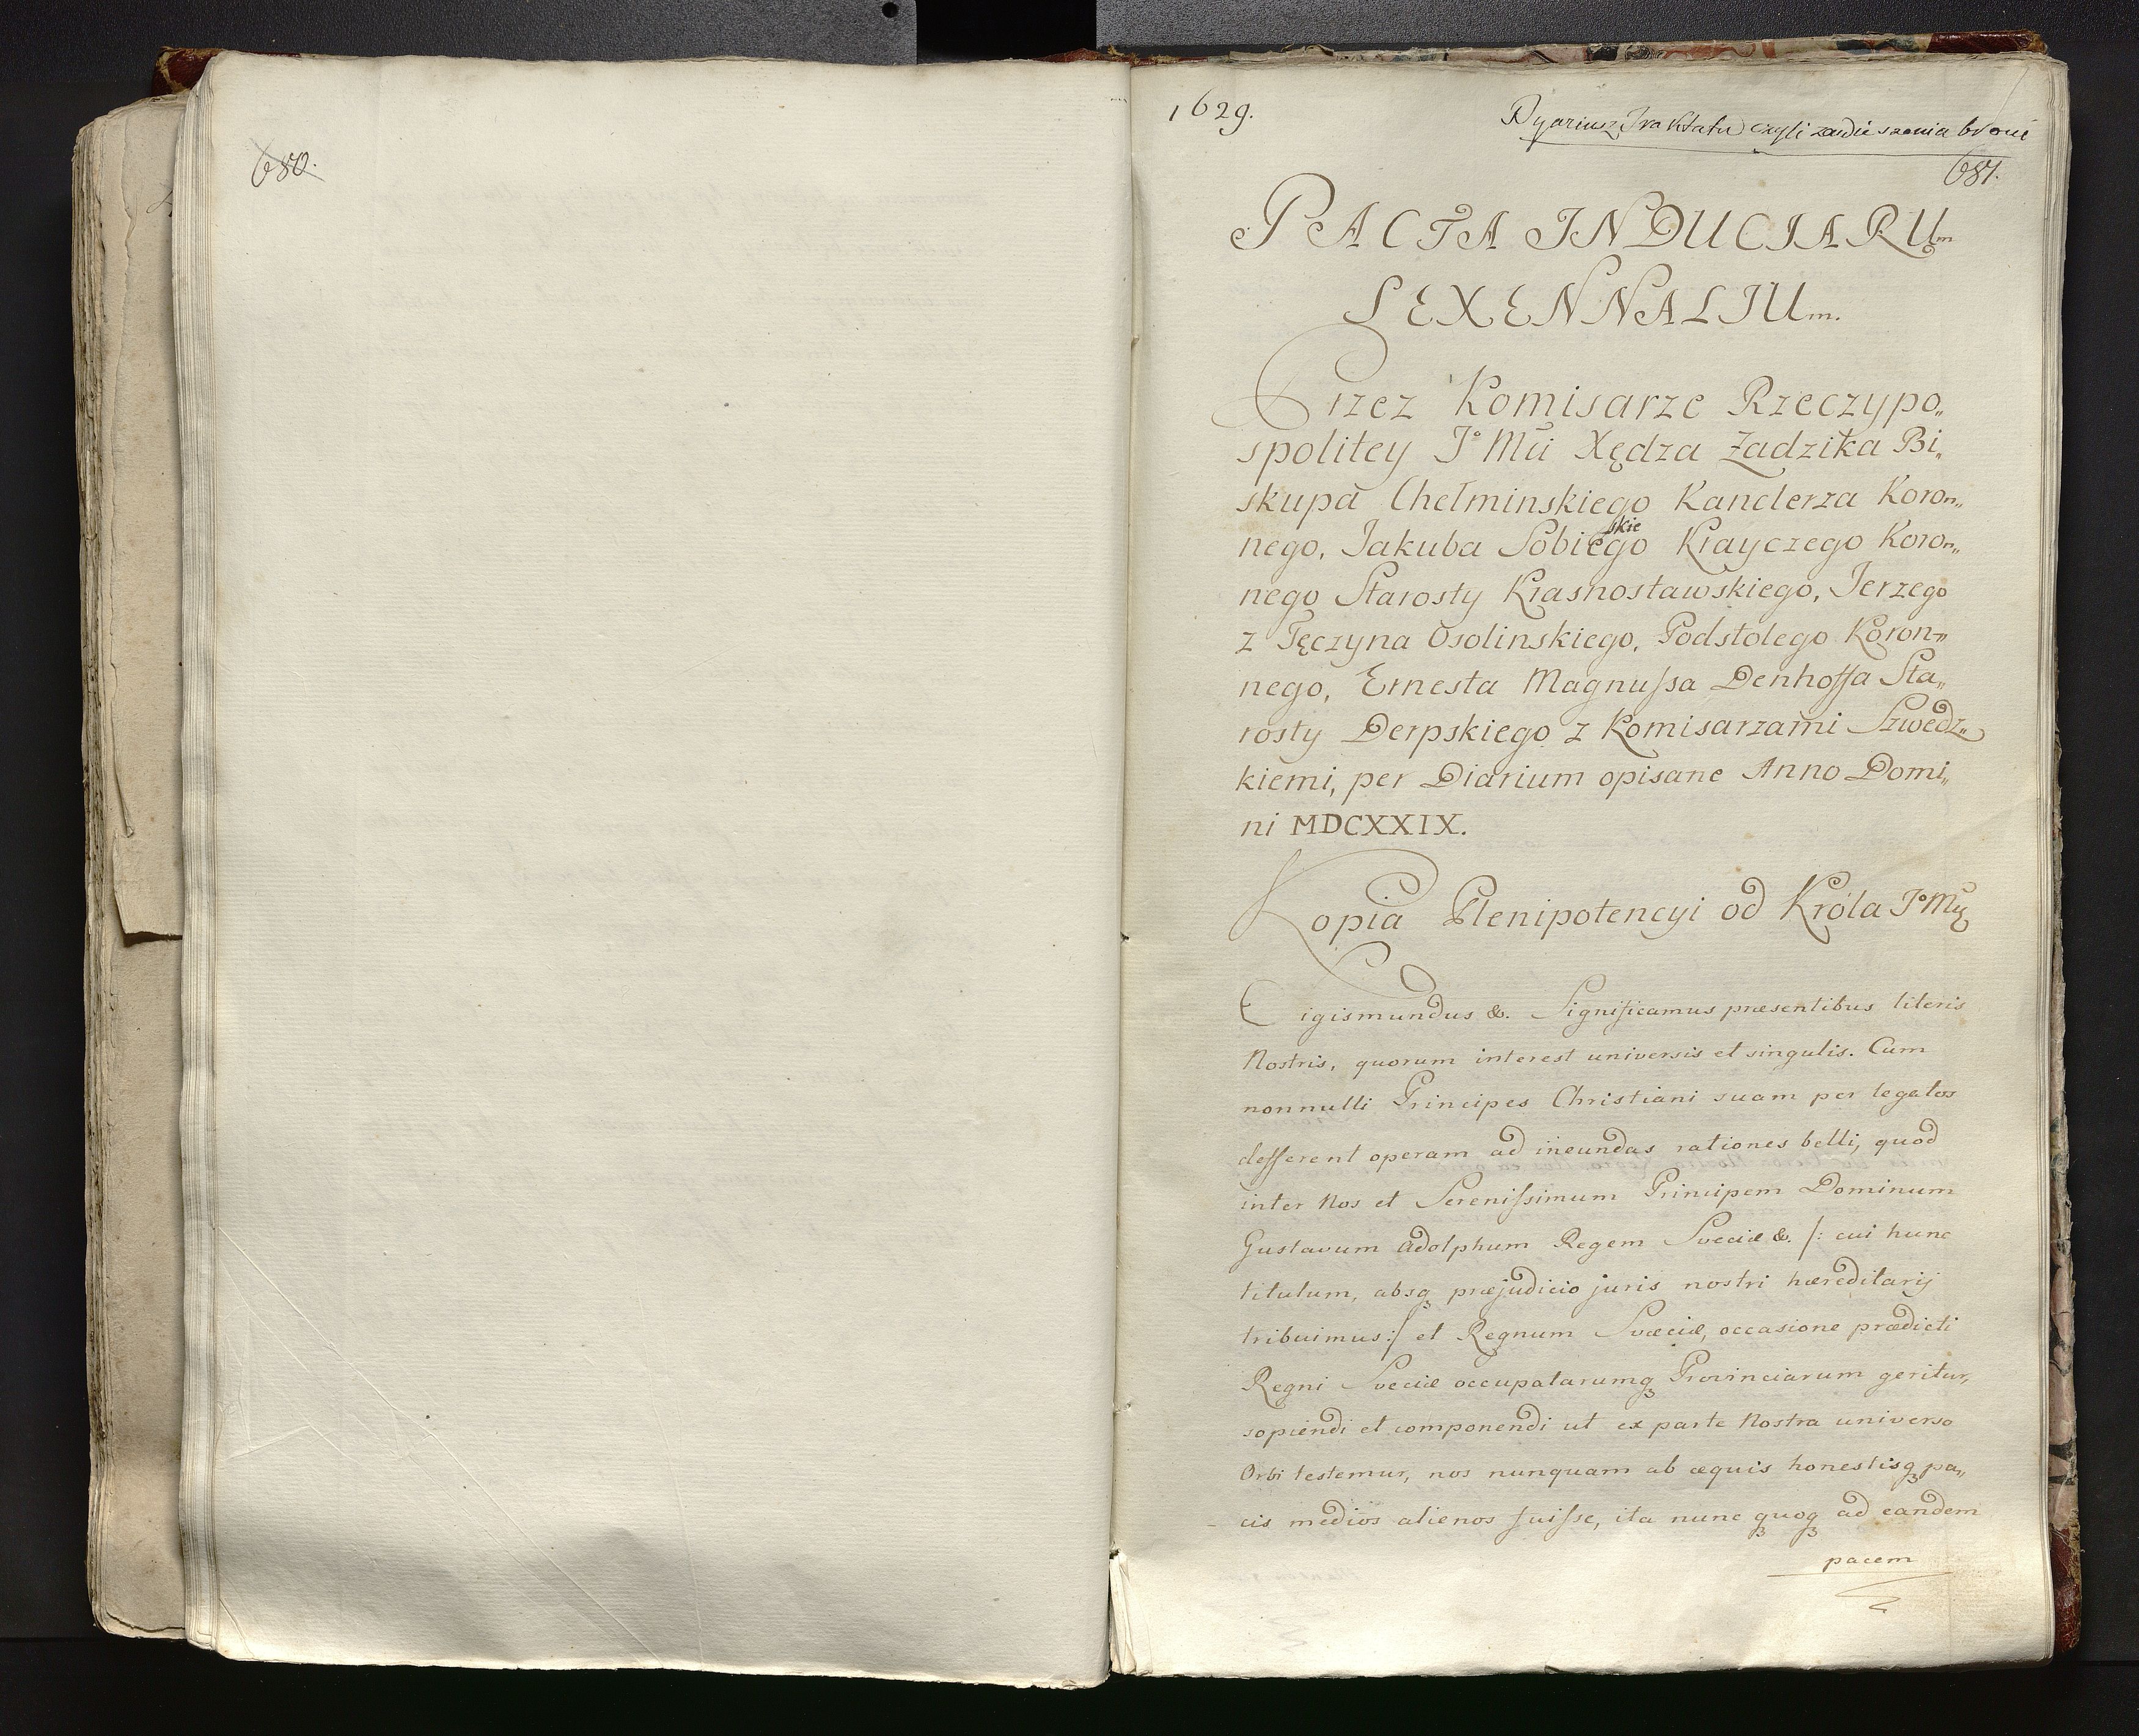 680.
1629.
Dyariusz Traktatu czyli zawieszenia broni
681.
PACTA INDUCIARUm
SEXENNALIUm.
Przez Komisarze Rzeczypo„
spolitey Jº Mći Xędza Zadzika Bi„
skupa Chełminskiego Kanclerza Koron„
skie
nego, Jakuba Sobiego Krayczego Koron„
nego Starosty Krasnostawskiego, Jerzego
z Tęczyna Osolinskiego, Podstolego Koron„
nego, Ernesta Magnuſsa Denhoffa Sta„
rosty Derpskiego z Komisarzami Szwedz„
kiemi, per Diarium opisane Anno Domi„
ni MDCXXIX.
Kopia Plenipotencyi od Króla Jº Mći
Sigismundus &. Significamus præsentibus literis
Nostris, quorum interest universis et singulis. Cum
nonnulli Principes Christiani suam per legatos
defferent operam ad ineundas rationes belli, quod
inter Nos et Sereniſsimum Principem Dominum
Gustavum Adolphum Regem Sveciæ &. /: cui hunc
titulum, absqꝫ præjudicio juris nostri hæreditarij
tribuimus :/ et Regnum Svæciæ, occasione prædicti
Regni Sveciæ occupatarumqꝫ Provinciarum geritur,
sopiendi et componendi ut ex parte Nostra universo
Orbi testemur, nos nunquam ab æquis honestisqꝫ pa„
cis medios alienos fuiſse, ita nunc quoqꝫ ad eandem
pacem